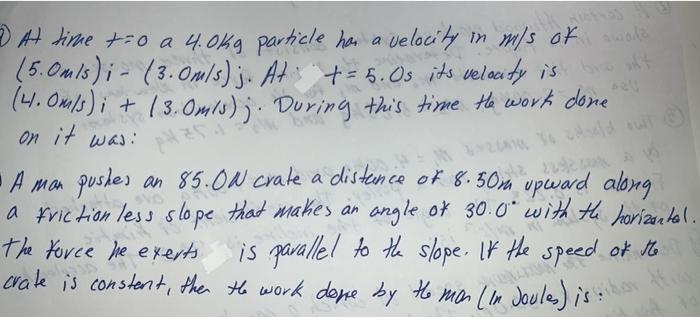 At time t=0 a 4.0kg particle has a velocity in m/s of
(5.0m/s)i - (3.0m/s)j. At t=5.0s its velocity is
(4.0m/s)i + (3.0m/s)j. During this time the work done
on it was:
A man pushes an 85.0N crate a distance of 8.50m upward along
a frictionless slope that makes an angle of 30.0° with the horizontal.
The force he exerts is parallel to the slope. If the speed of the
crate is constant, then the work done by the man (in Joules) is: